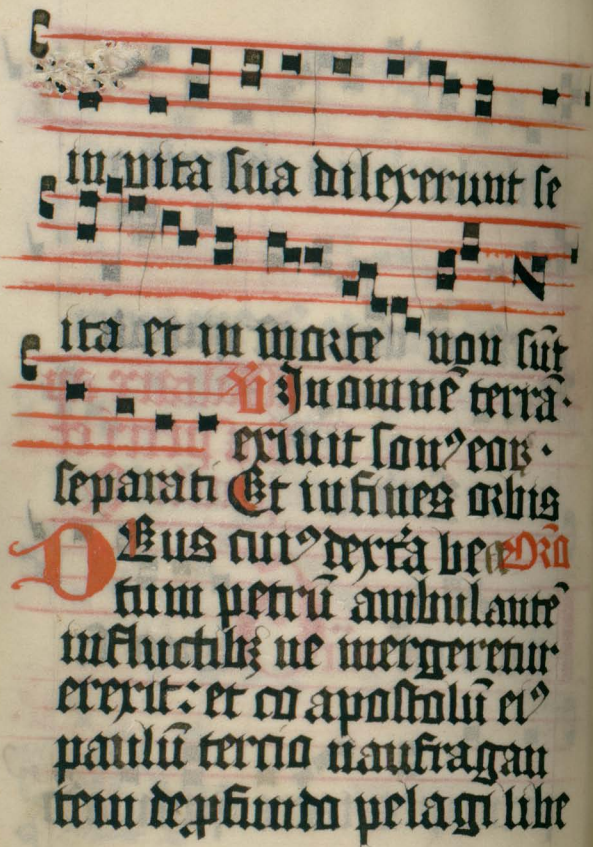 in vita sua dilexerunt se
ita et in morte non sūt
℣ In omnē terrā·
exivit sonꝰ eoꝝ·
separati Et in fines orbis
Deus cuiꝰ dextᵃa bea Orō
tum petrū ambulantē
in fluctibꝫ ne mergeretur
erexit: et co apostolū eiꝰ
paulū tercio naufragan
tem de ꝓfundo pelagi libe